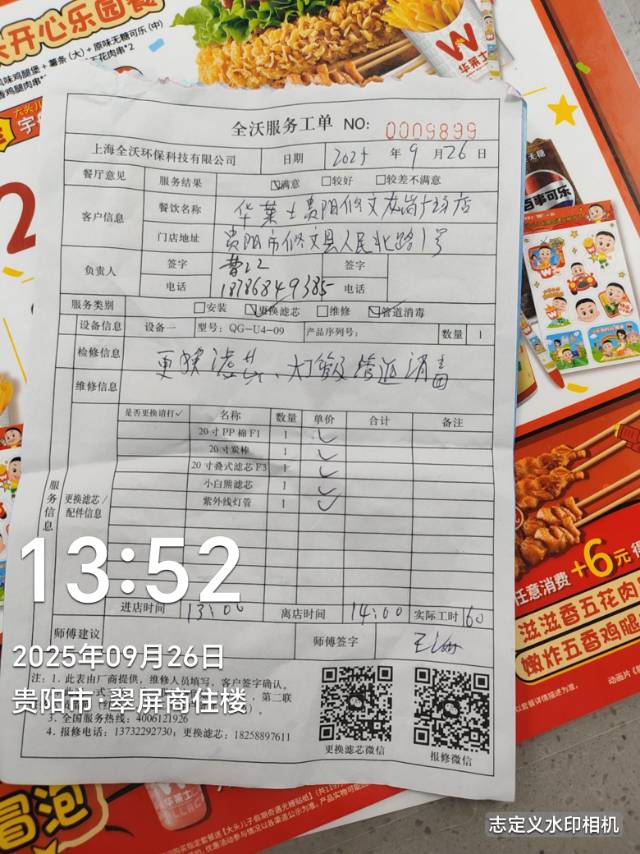 开心乐园餐
味鸡腿堡+薯条(大)+原味无糖可乐(中)
五花肉串*2
华莱士
全沃服务工单 NO: 0009899
上海全沃环保科技有限公司 日期 2025 年 9 月 26 日
餐厅意见 服务结果 ☑满意 □较好 □较差不满意
客户信息 餐饮名称 华莱士贵阳修文友尚广场店
门店地址 贵阳市修文县人民北路1号
负责人 签字 签字
电话 18786849385 电话
服务类别 □安装 ☑更换滤芯 □维修 ☑管道消毒
设备信息 设备一 型号: QG-U4-09 产品序列号: 数量 1
检修信息 更换滤芯、灯管及管道消毒
维修信息
是否更换请打✓ 名称 数量 单价 合计 备注
20寸PP棉F1 1 ✓
20寸炭棒 1 ✓
20寸叠式滤芯F3 1 ✓
小白熊滤芯 1 ✓
紫外线灯管 1 ✓
服务信息
更换滤芯/
配件信息
进店时间 13:00 离店时间 14:00 实际工时 60
师傅建议 师傅签字
注: 1. 此表由厂商提供，维修人员填写，客户签字确认。
第二联
3. 全国服务热线: 4006121926
4. 报修电话: 13732292730; 更换滤芯: 18258897611
更换滤芯微信 报修微信
13:52
2025年09月26日
贵阳市·翠屏商住楼
无糖
百事可乐
任意消费+6元得
滋滋香五花肉
嫩炸五香鸡腿
冒泡
志定义水印相机